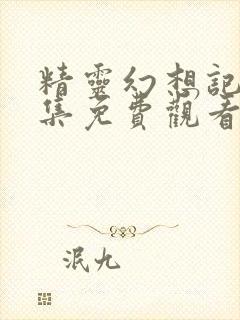 精靈幻想記
集免費觀看
泯九